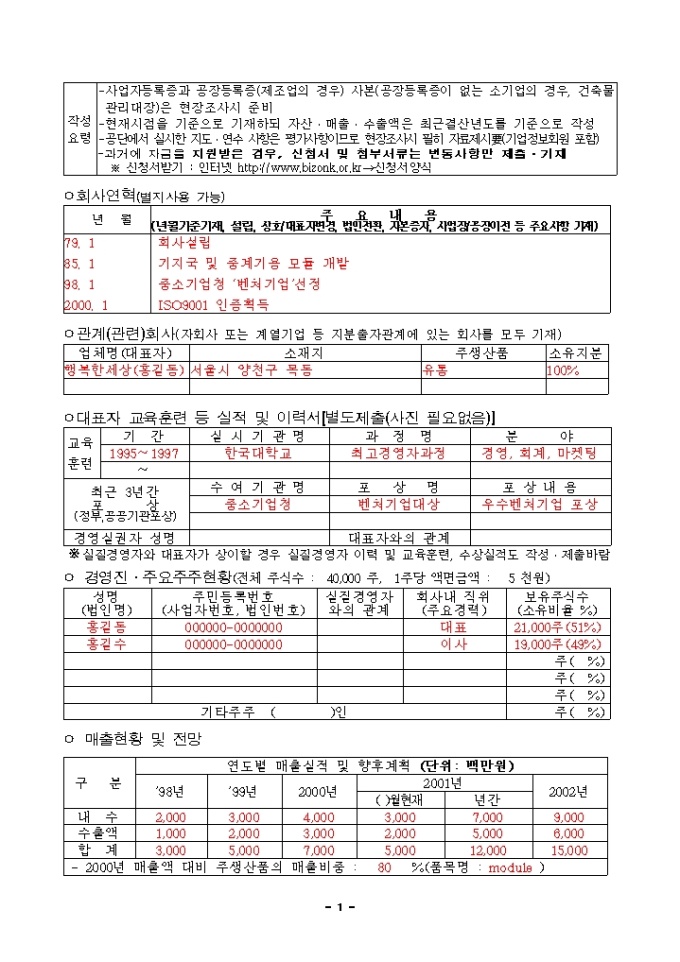 작성요령
-사업자등록증과 공장등록증(제조업의 경우) 사본(공장등록증이 없는 소기업의 경우, 건축물
관리대장)은 현장조사시 준비
-현재시점을 기준으로 기재하되 자산·매출·수출액은 최근결산년도를 기준으로 작성
-공단에서 실시한 지도·연수 사항은 평가사항이므로 현장조사시 필히 자료제시요(기업정보회원 포함)
-과거에 자금을 지원받은 경우, 신청서 및 첨부서류는 변동사항만 제출·기재
※ 신청서받기 : 인터넷 http://www.bizonk.or.kr→신청서양식
ㅇ회사연혁(별지사용 가능)
년 월 주 요 내 용
(년월기준기재, 설립, 상호/대표자변경, 법인전환, 자본증자, 사업장/공장이전 등 주요사항 기재)
79. 1 회사설립
85. 1 기지국 및 중계기용 모듈 개발
98. 1 중소기업청 '벤처기업'선정
2000. 1 ISO9001 인증획득
ㅇ관계(관련)회사(자회사 또는 계열기업 등 지분출자관계에 있는 회사를 모두 기재)
업체명(대표자) 소재지 주생산품 소유지분
행복한세상(홍길동) 서울시 양천구 목동 유통 100%
ㅇ대표자 교육훈련 등 실적 및 이력서[별도제출(사진 필요없음)]
교육훈련 기 간 실 시 기 관 명 과 정 명 분 야
1995~1997 한국대학교 최고경영자과정 경영, 회계, 마켓팅
~
최근 3년간 포 상 (정부,공공기관포상) 수 여 기 관 명 포 상 명 포 상 내 용
중소기업청 벤처기업대상 우수벤처기업 포상
경영실권자 성명 대표자와의 관계
※실질경영자와 대표자가 상이할 경우 실질경영자 이력 및 교육훈련, 수상실적도 작성·제출바람
ㅇ 경영진·주요주주현황(전체 주식수 : 40,000 주, 1주당 액면금액 : 5 천원)
성명 (법인명) 주민등록번호 (사업자번호, 법인번호) 실질경영자와의 관계 회사내 직위 (주요경력) 보유주식수 (소유비율 %)
홍길동 000000-0000000 대표 21,000주(51%)
홍길수 000000-0000000 이사 19,000주(49%)
주( %)
주( %)
주( %)
기타주주 ( )인 주( %)
ㅇ 매출현황 및 전망
구 분 연도별 매출실적 및 향후계획 (단위: 백만원)
'98년 '99년 2000년 2001년 2002년
( )월현재 년간
내 수 2,000 3,000 4,000 3,000 7,000 9,000
수출액 1,000 2,000 3,000 2,000 5,000 6,000
합 계 3,000 5,000 7,000 5,000 12,000 15,000
- 2000년 매출액 대비 주생산품의 매출비중 : 80 %(품목명 : module )
- 1 -